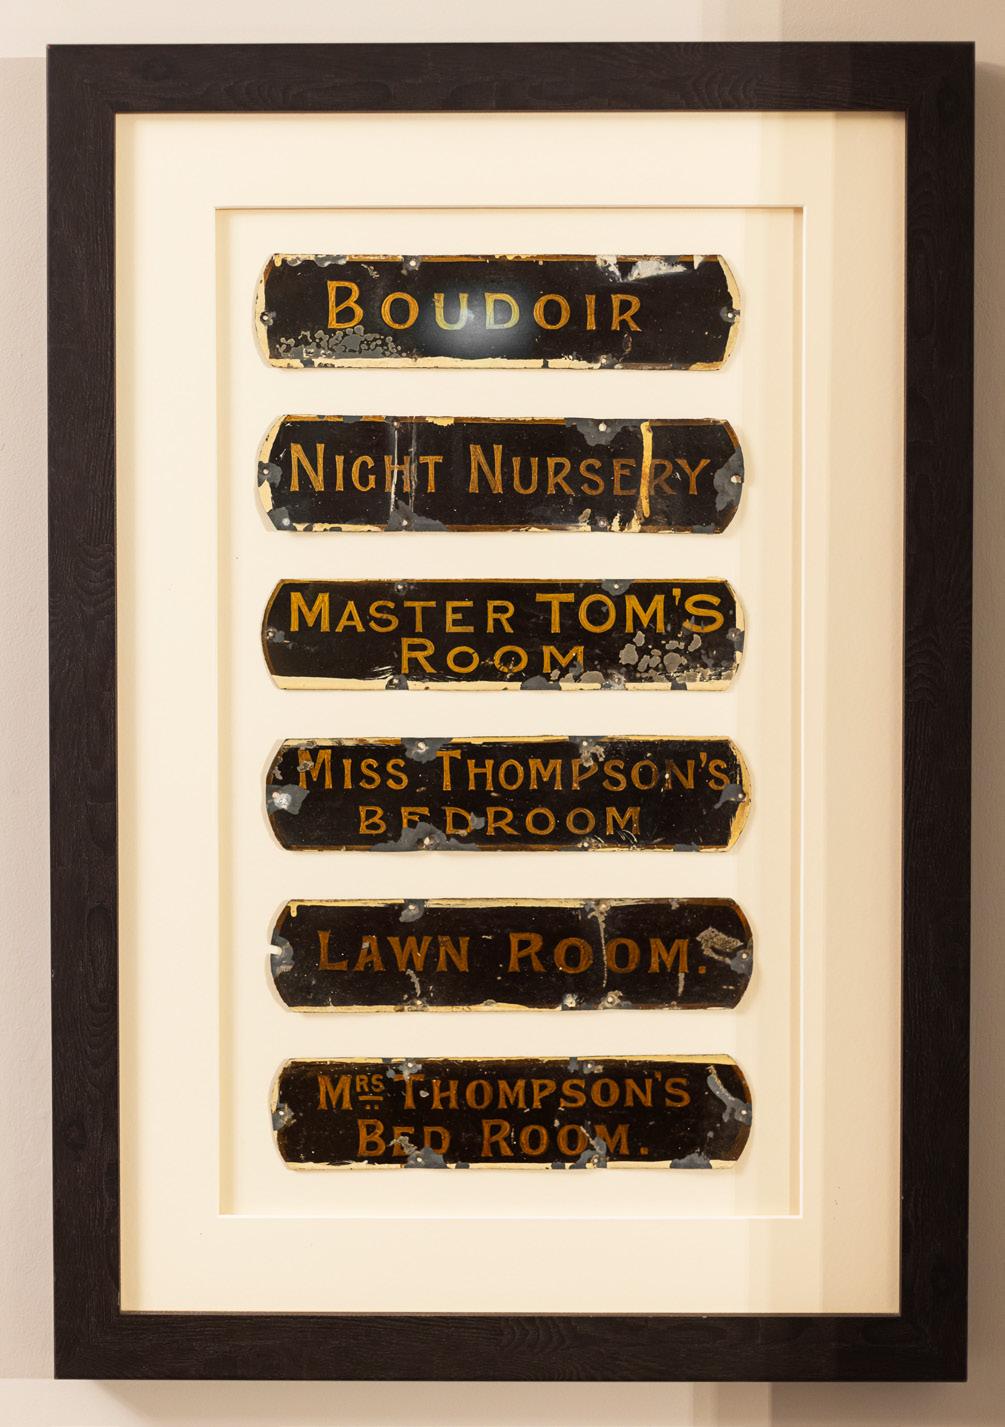 BOUDOIR
NIGHT NURSERY
MASTER TOM'S
ROOM
MISS THOMPSON'S
BEDROOM
LAWN ROOM.
MRS THOMPSON'S
BED ROOM.